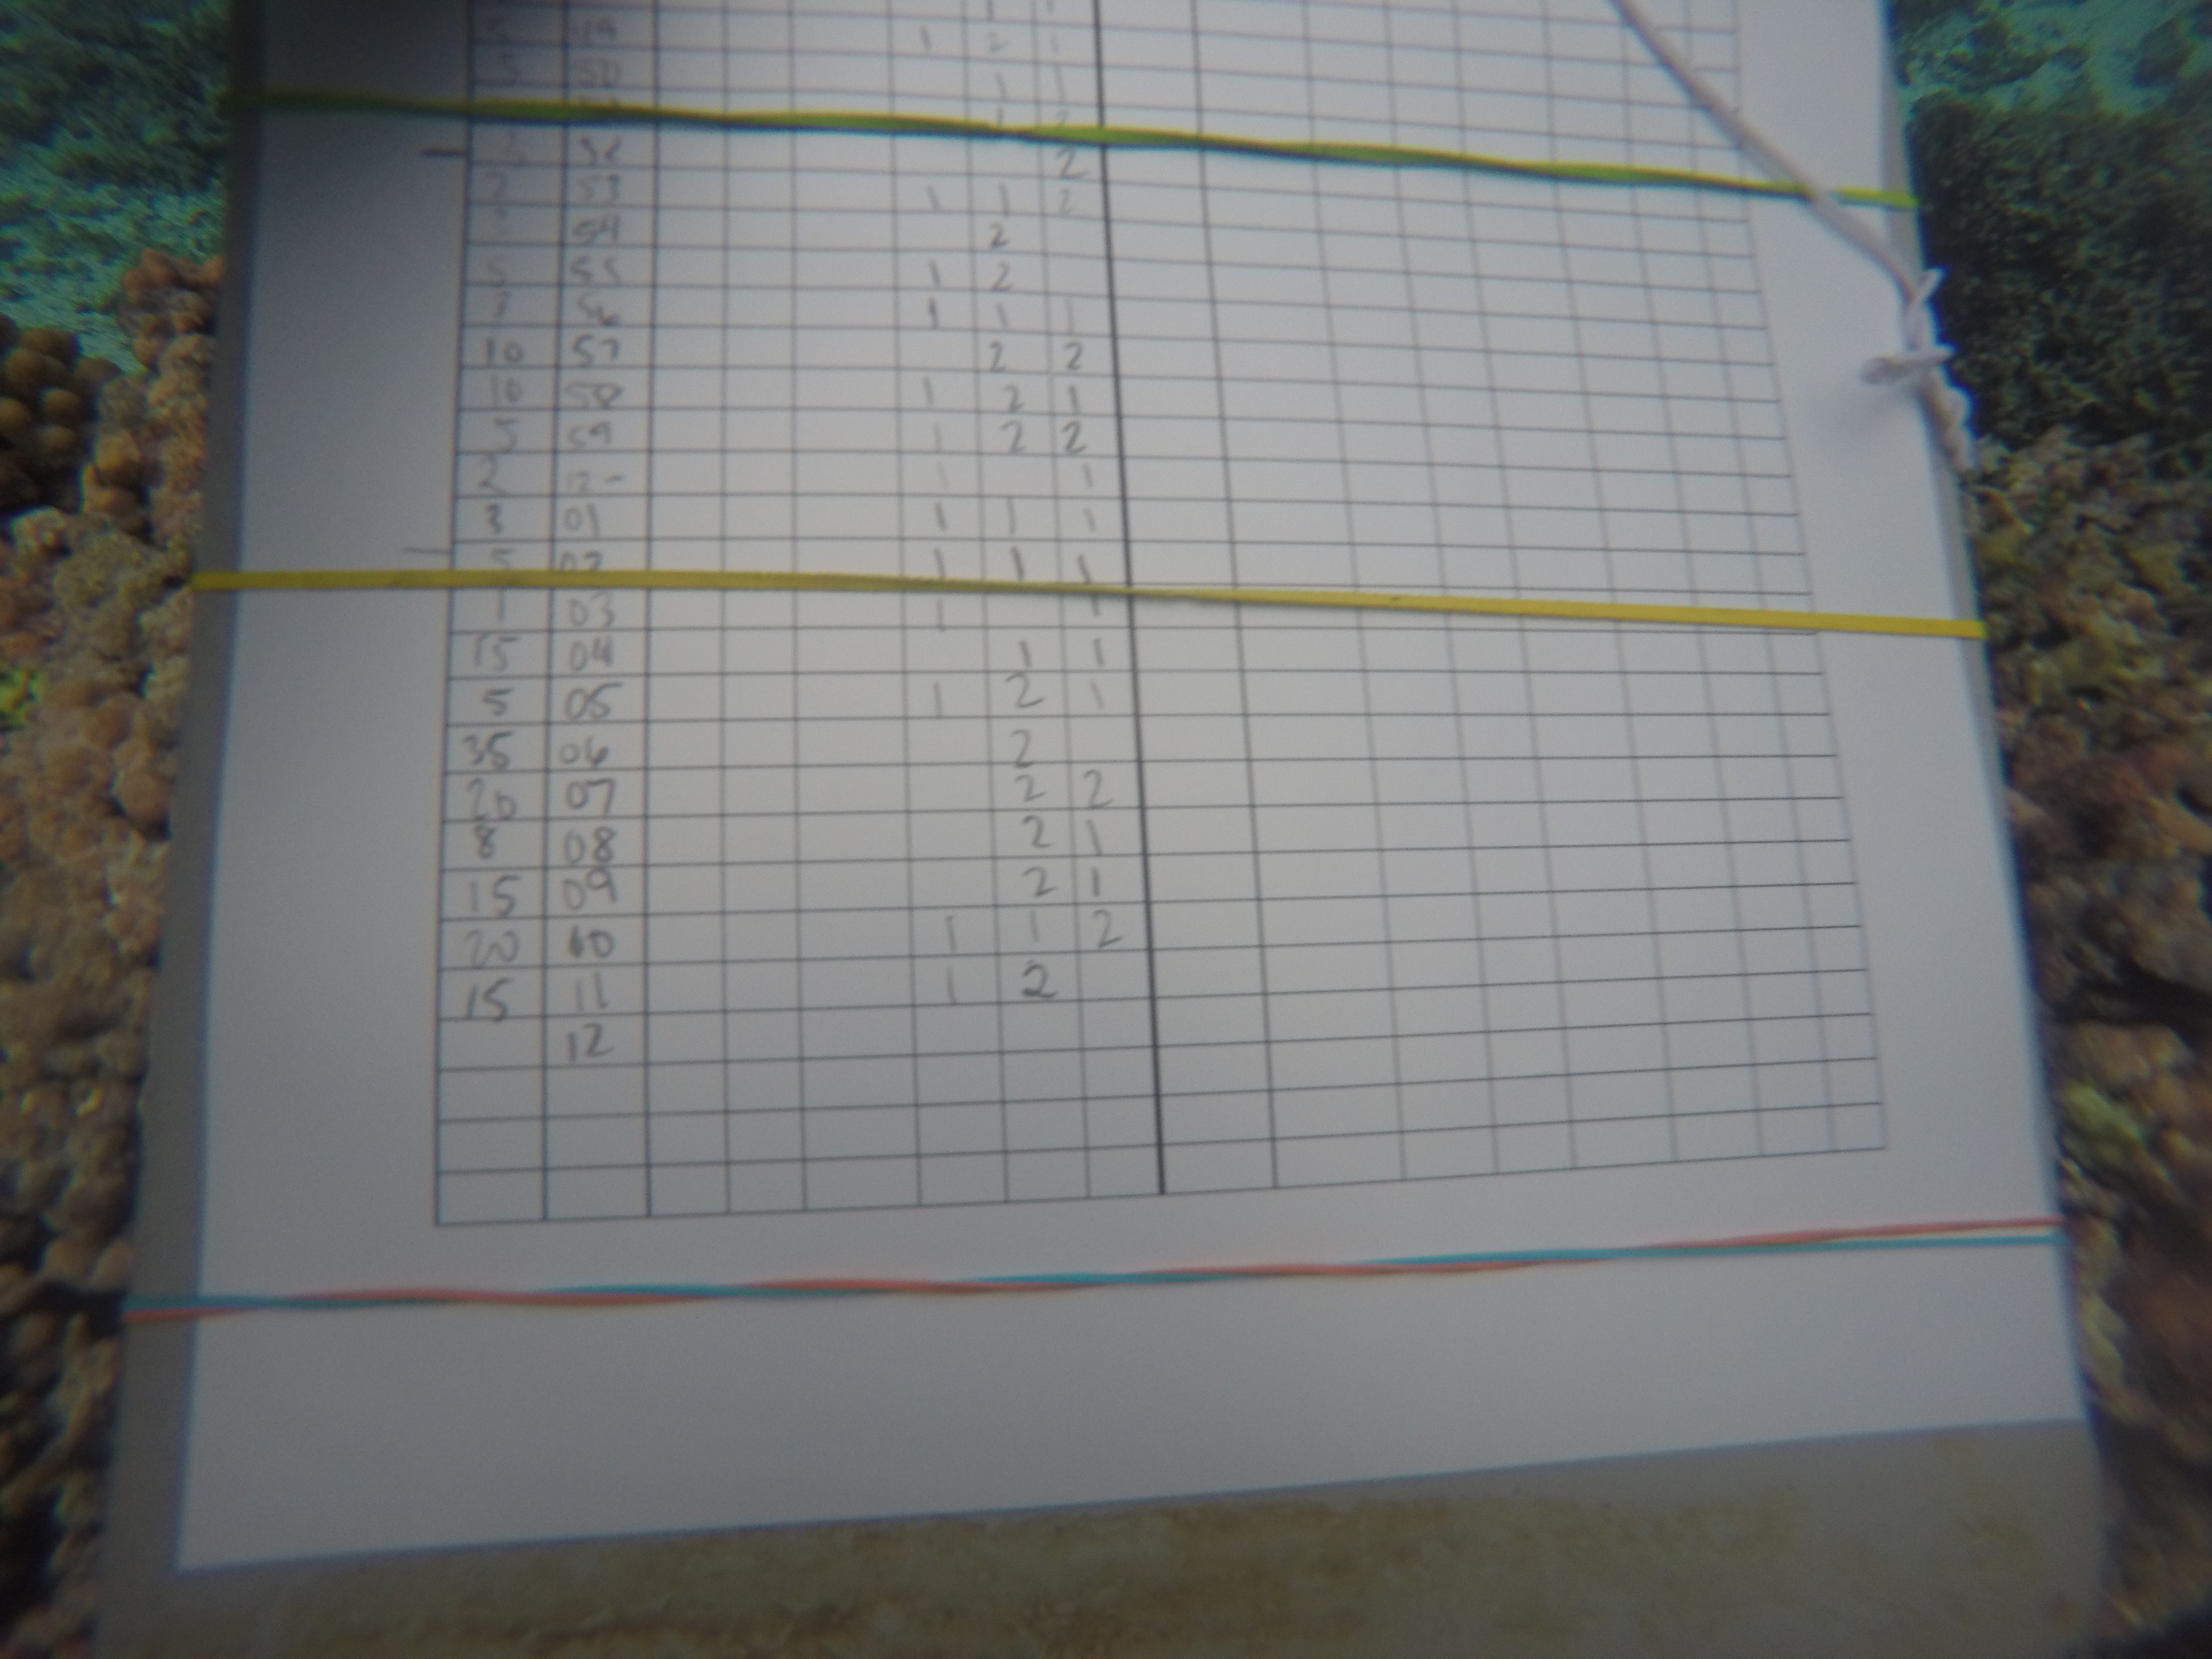 49 1 2 1
50 1 1
52 2
2 53 1 1 2
54 2
5 55 1 2
7 56 1 1 1
10 57 2 2
10 58 1 2 1
5 59 1 2 2
2 12- 1 1
3 01 1 1 1
5 02 1 1 1
1 03 1 1
15 04 1 1
5 05 1 2 1
35 06 2
20 07 2 2
8 08 2 1
15 09 2 1
20 10 1 1 2
15 11 1 2
12